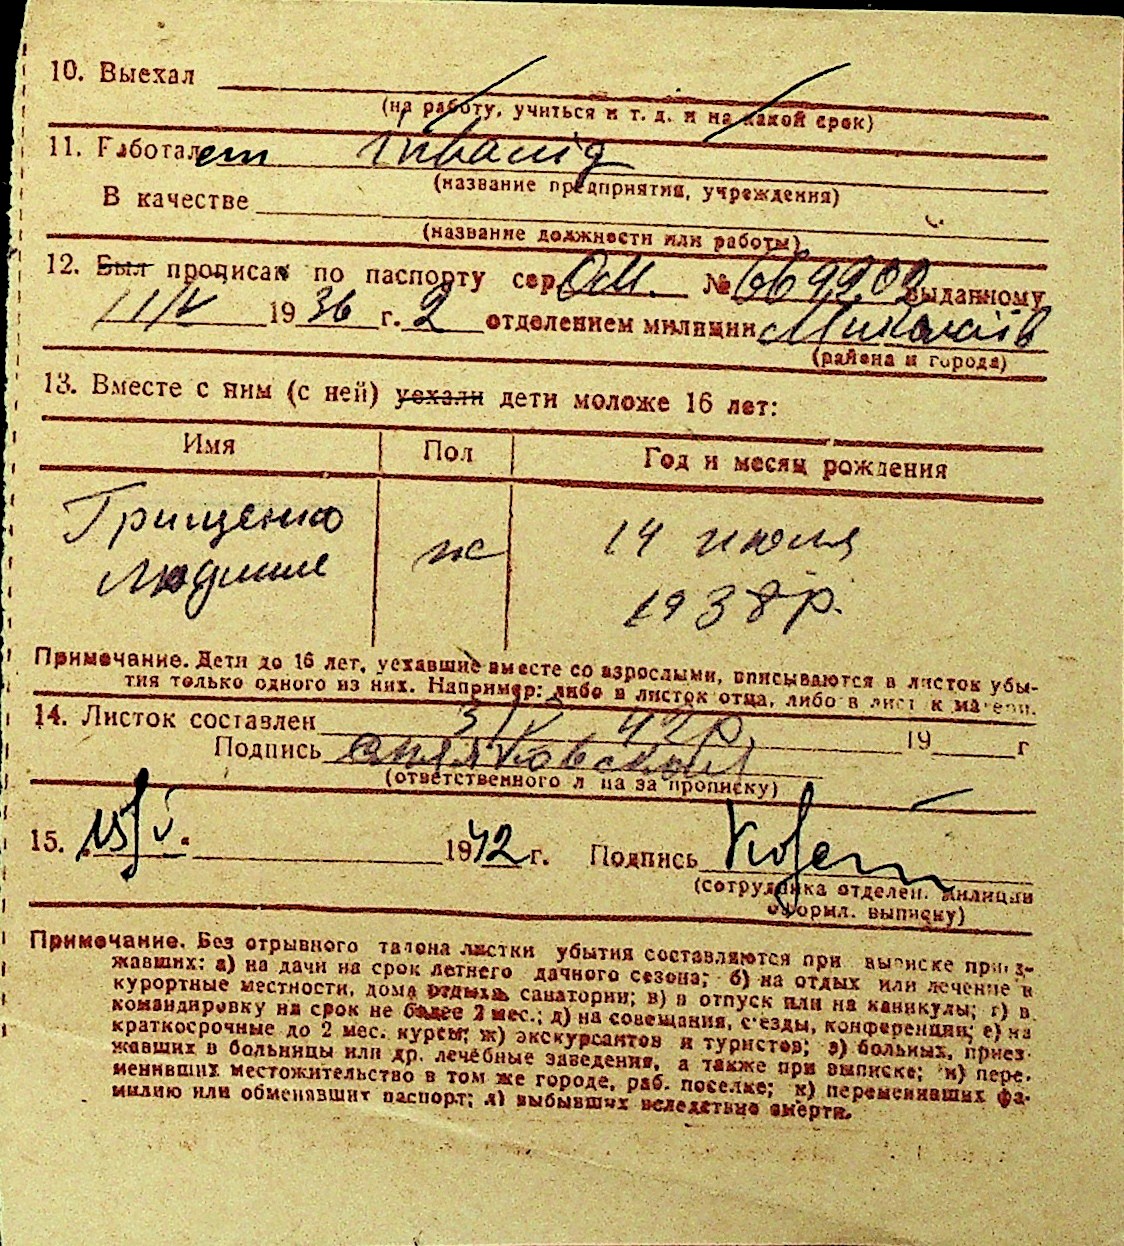 10. Выехал
(на работу, учиться и т. д. и на какой срок)
11. Работает інвалід
(название предприятия, учреждения)
В качестве
(название должности или работы)
12. Был прописан по паспорту сер. ОМ. № 669902 выданному
11/V 1936 г. 2 отделением милиции Миколаїв
(района и города)
13. Вместе с ним (с ней) уехали дети моложе 16 лет:
Имя Пол Год и месяц рождения
Грищенко ж 14 июля
1938 р.
Примечание. Дети до 16 лет, уехавшие вместе со взрослыми, вписываются в листок убы-
тия только одного из них. Например: либо в листок отца, либо в листок матери.
14. Листок составлен 3/V 42 р. 19 г
Подпись
(ответственного лица за прописку)
15. 15/V. 1942 г. Подпись
(сотрудника отделен. милиции
оформл. выписку)
Примечание. Без отрывного талона листки убытия составляются при выписке приез-
жавших: а) на дачи на срок летнего дачного сезона; б) на отдых или лечение в
курортные местности, дома отдыха, санатории; в) в отпуск или на каникулы; г) в
командировку на срок не более 2 мес.; д) на совещания, с'езды, конференции; е) на
краткосрочные до 2 мес. курсы; ж) экскурсантов и туристов; з) больных, приез-
жавших в больницы или др. лечебные заведения, а также при выписке; и) пере-
менивших местожительство в том же городе, раб. поселке; к) переменивших фа-
милию или обменявших паспорт; л) выбывших вследствие смерти.